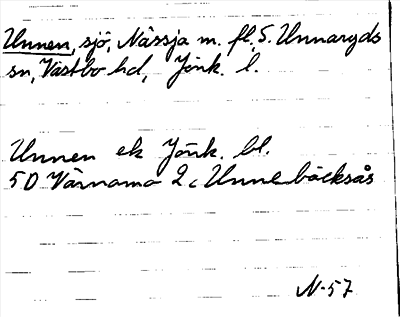 Unnen, sjö, Nässja m. fl, S. Unnaryds
sn, Västbo hd, Jönk. l.
Unnen ek Jönk. bl.
5D Värnamo 2c Unnebäcksås
N-57